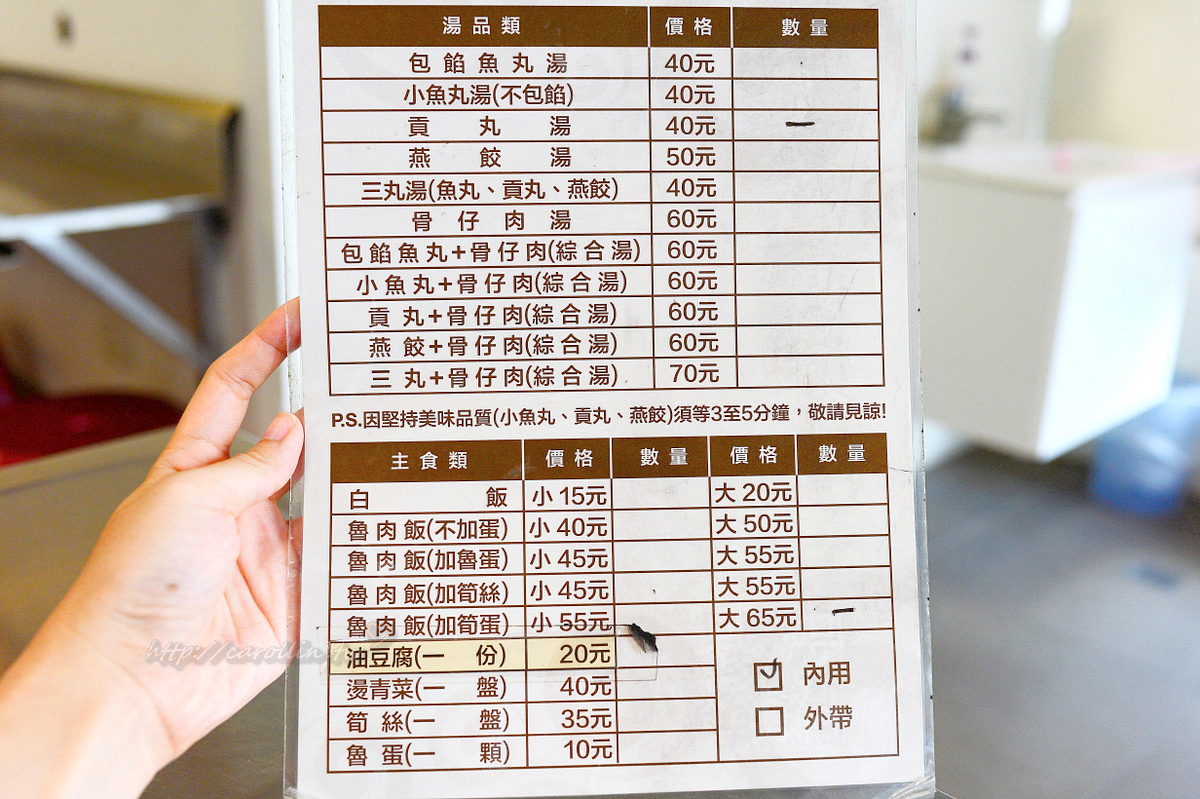 湯品類 價格 數量
包餡魚丸湯 40元
小魚丸湯(不包餡) 40元
貢丸湯 40元 一
燕餃湯 50元
三丸湯(魚丸、貢丸、燕餃) 40元
骨仔肉湯 60元
包餡魚丸+骨仔肉(綜合湯) 60元
小魚丸+骨仔肉(綜合湯) 60元
貢丸+骨仔肉(綜合湯) 60元
燕餃+骨仔肉(綜合湯) 60元
三丸+骨仔肉(綜合湯) 70元
P.S.因堅持美味品質(小魚丸、貢丸、燕餃)須等3至5分鐘，敬請見諒!
主食類 價格 數量 價格 數量
白飯 小 15元 大 20元
魯肉飯(不加蛋) 小 40元 大 50元
魯肉飯(加魯蛋) 小 45元 大 55元
魯肉飯(加筍絲) 小 45元 大 55元
魯肉飯(加筍蛋) 小 55元 大 65元 一
油豆腐(一份) 20元
燙青菜(一盤) 40元
筍絲(一盤) 35元
魯蛋(一顆) 10元
內用
外帶